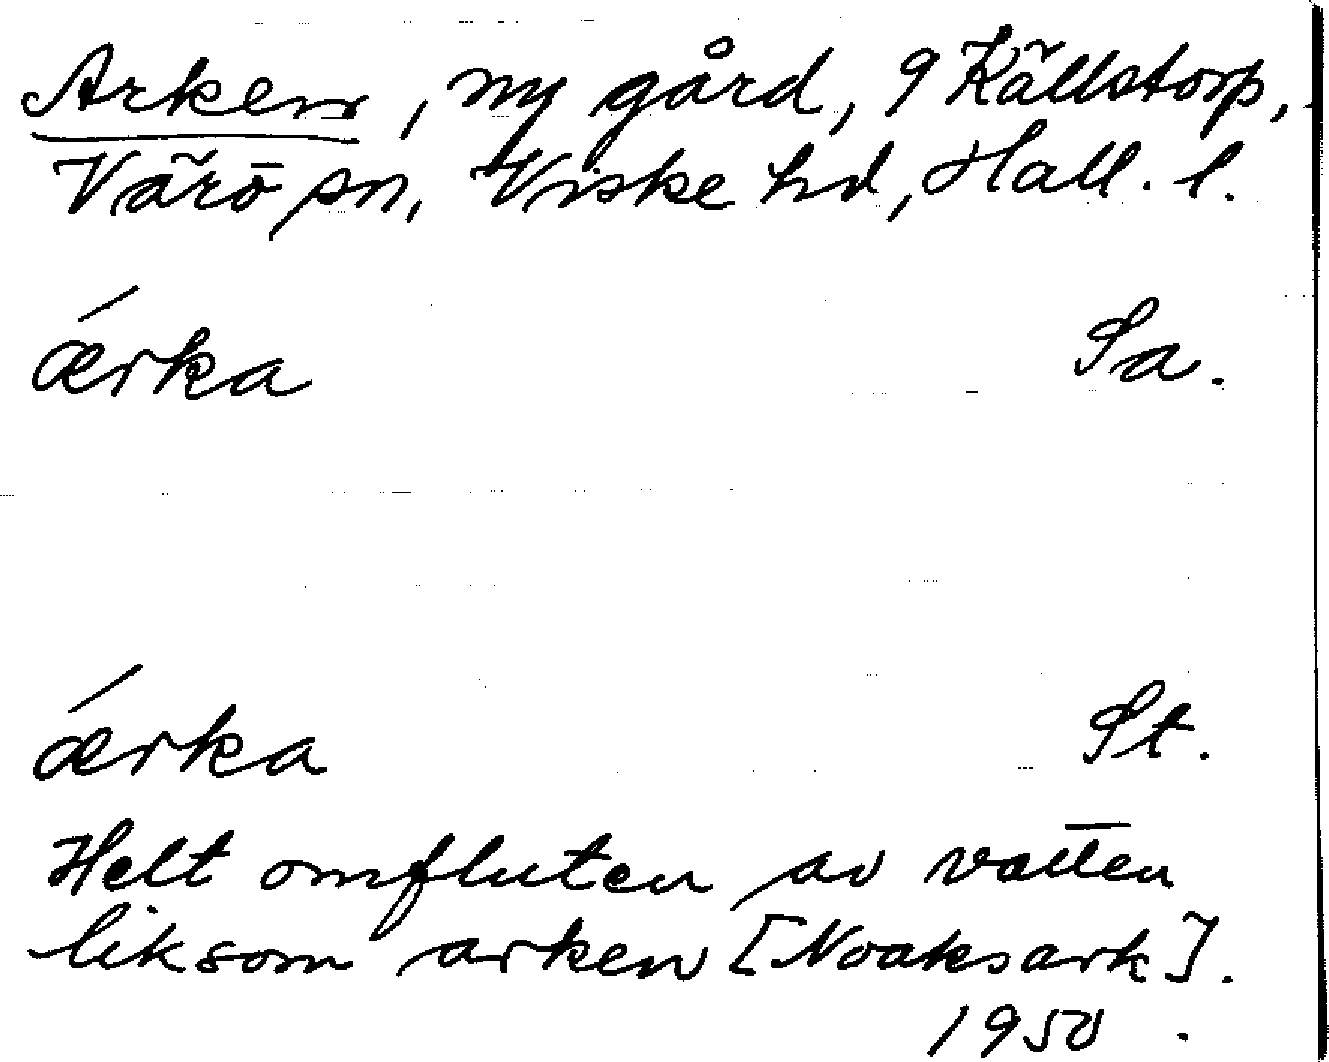 Arken, ny gård, 9 Källstorp,
Värö sn, Viske hd, Hall. l.
ǽrka Sa.
ǽrka St.
Helt omfluten av vatten
liksom arken [Noaks ark].
1950.